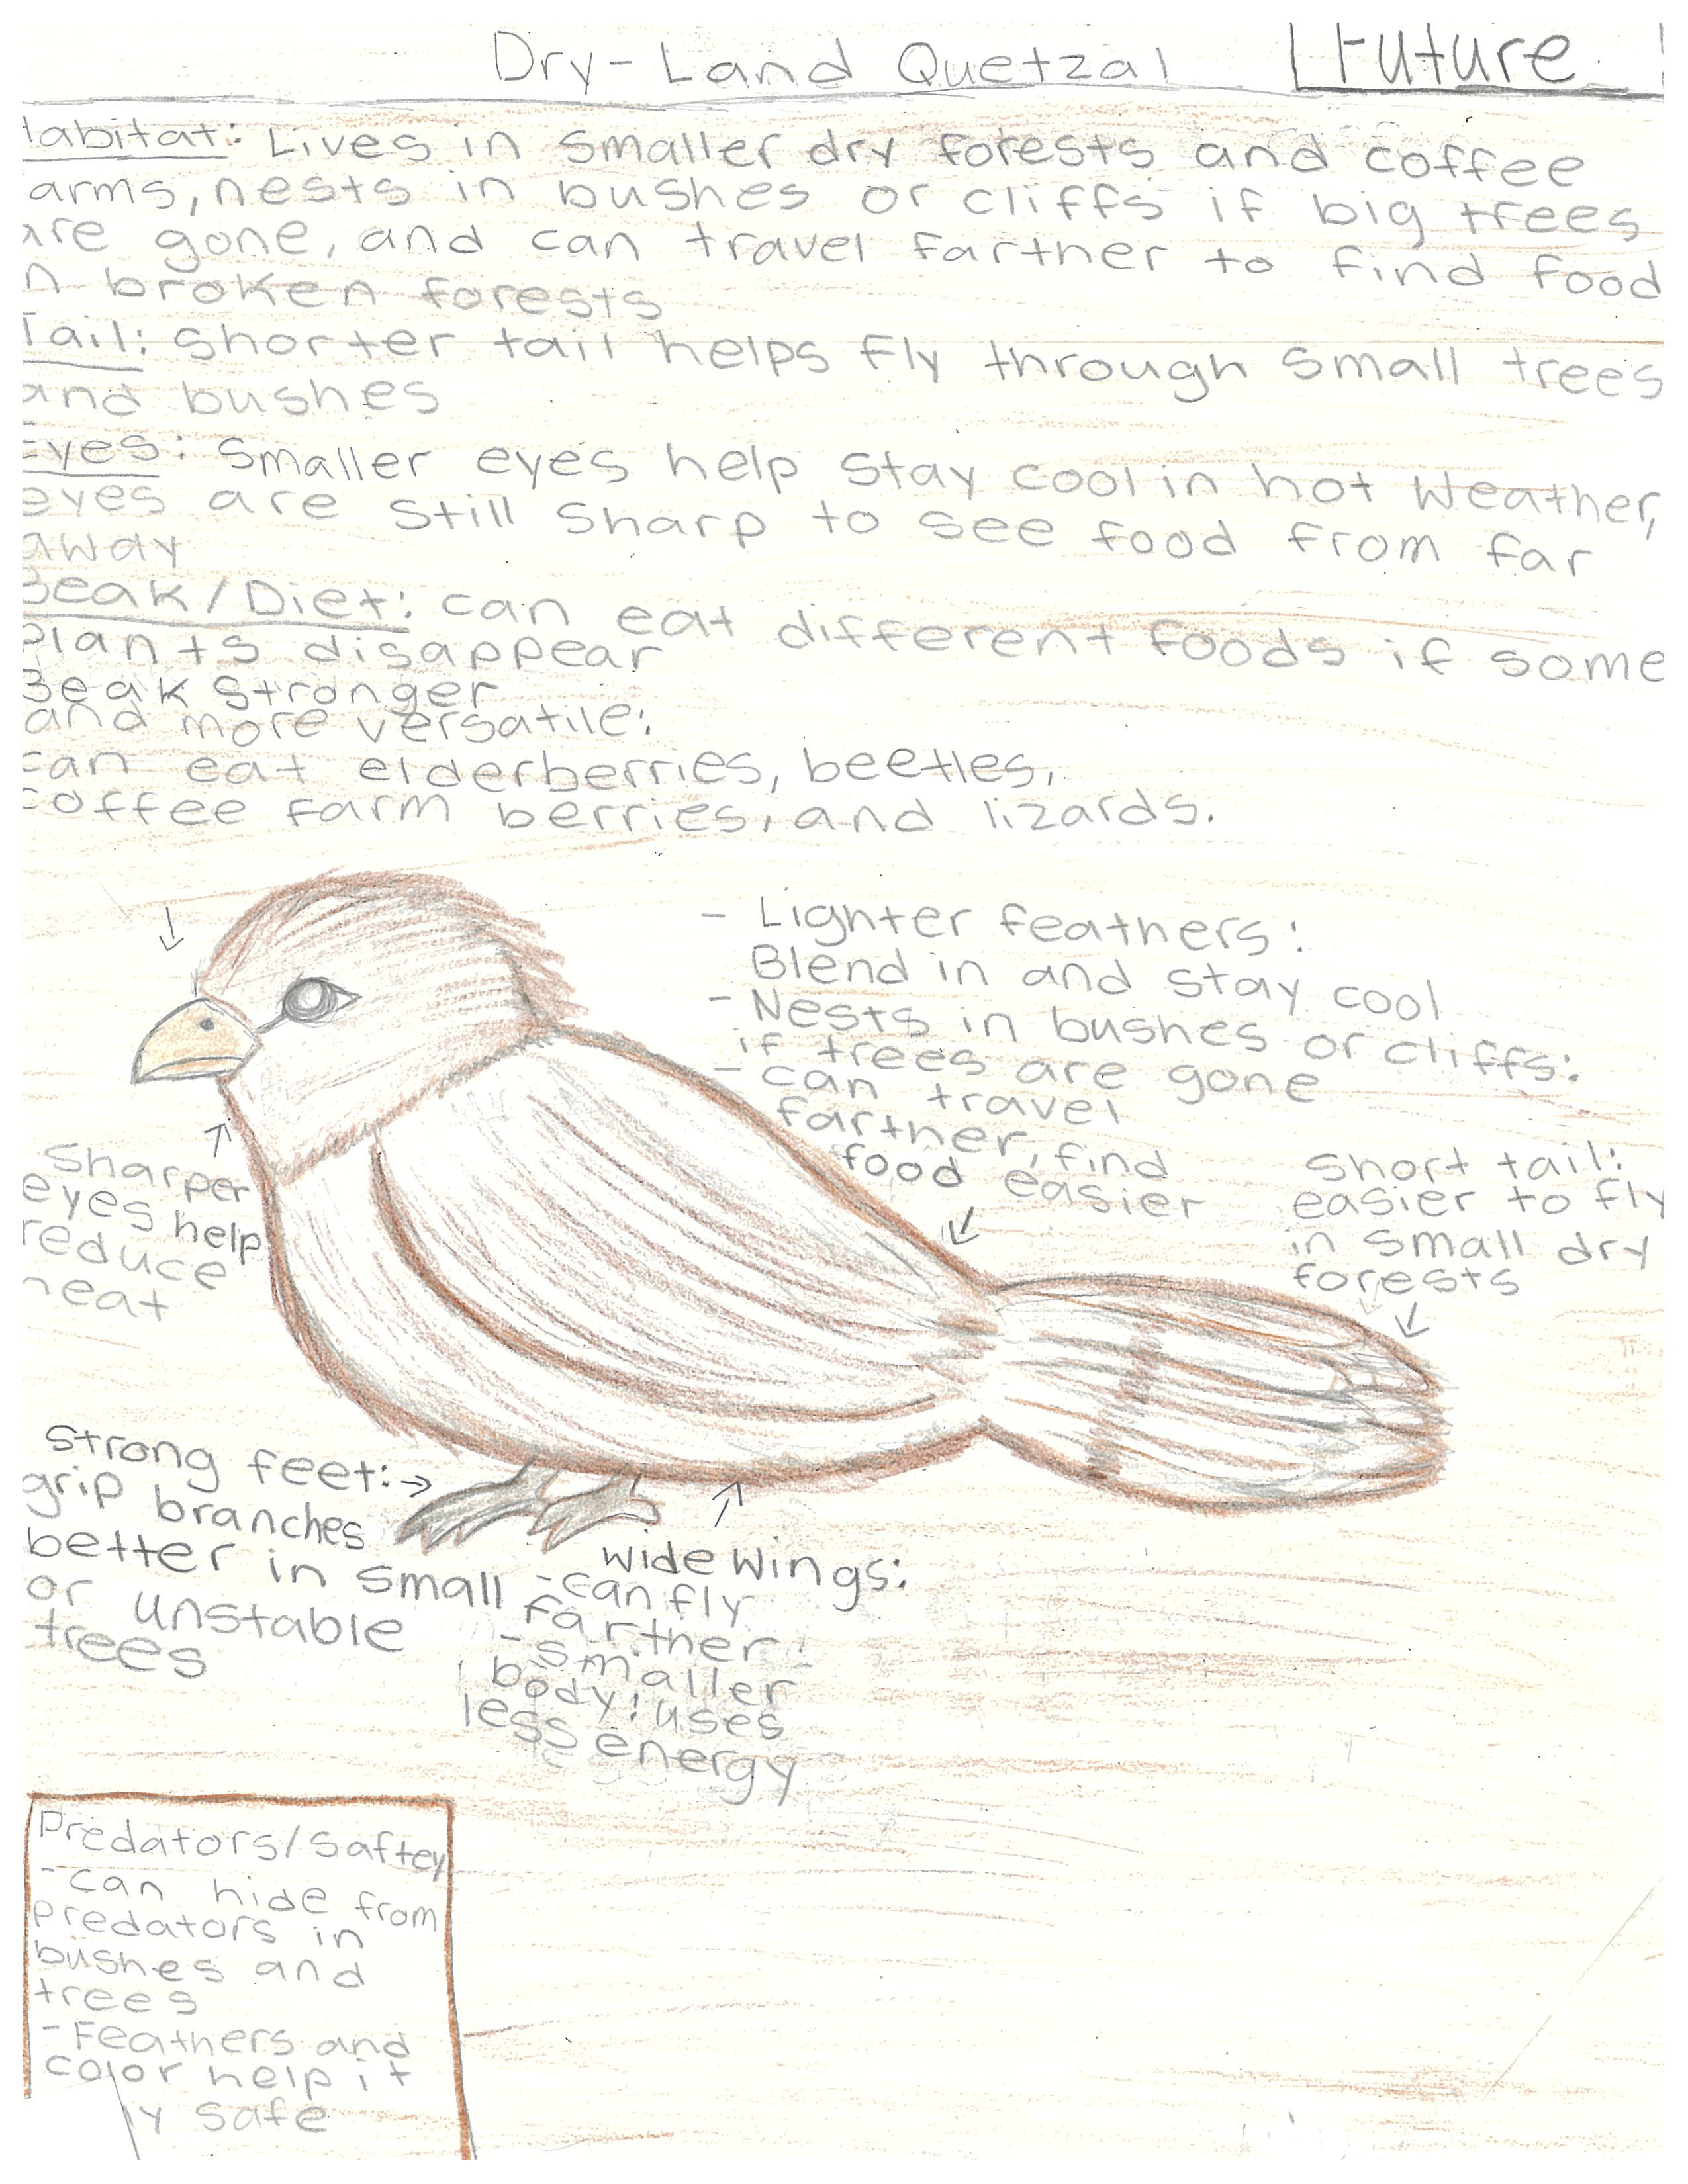 Dry-Land Quetzal
Future
Habitat: Lives in smaller dry forests and coffee
arms, nests in bushes or cliffs if big trees
are gone, and can travel farther to find food
n broken forests
Tail: Shorter tail helps fly through small trees
and bushes
Eyes: Smaller eyes help stay cool in hot weather,
eyes are still sharp to see food from far
away
Beak/Diet: can eat different foods if some
plants disappear
Beak stronger
and more versatile:
can eat elderberries, beetles,
coffee farm berries, and lizards.
- Lighter feathers:
Blend in and stay cool
- Nests in bushes or cliffs:
if trees are gone
- can travel
farther, find
food easier
Short tail:
easier to fly
in small dry
forests
Sharper
eyes help
reduce
heat
strong feet:
grip branches
better in small
or unstable
trees
wide wings:
- can fly
farther
- smaller
body: uses
less energy
Predators/Saftey
- can hide from
predators in
bushes and
trees
- Feathers and
color help it
y safe